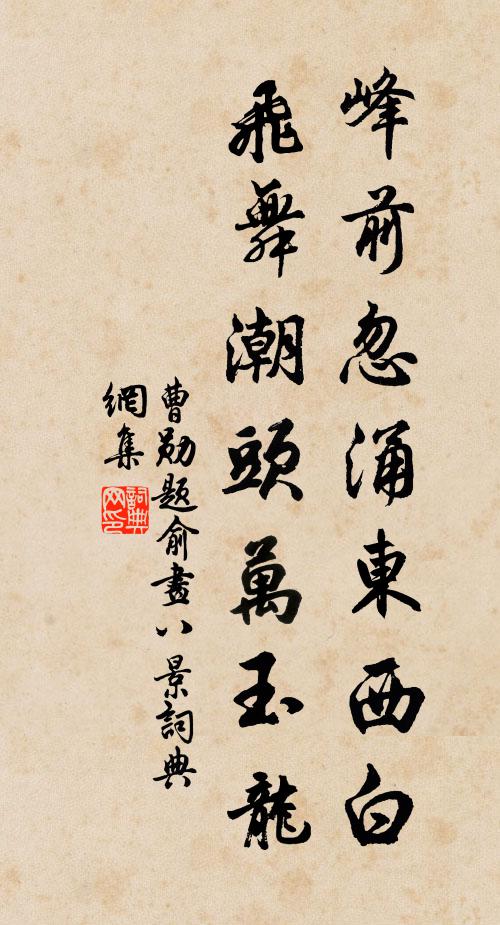 峰前忽涌東西白
飛舞潮頭萬玉龍
曹勛題俞畫八景詞典
網集
詞典
网印